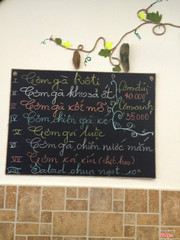 I Cơm gà Rôti
II Cơm gà kho sả ớt
III Cơm gà xối mỡ
IV Cơm chiên gà xé
V Cơm gà luộc
VI Cơm gà chiên nước mắm
VII Cơm xá xíu
VIII Salad chua ngọt 10
40.000
35.000